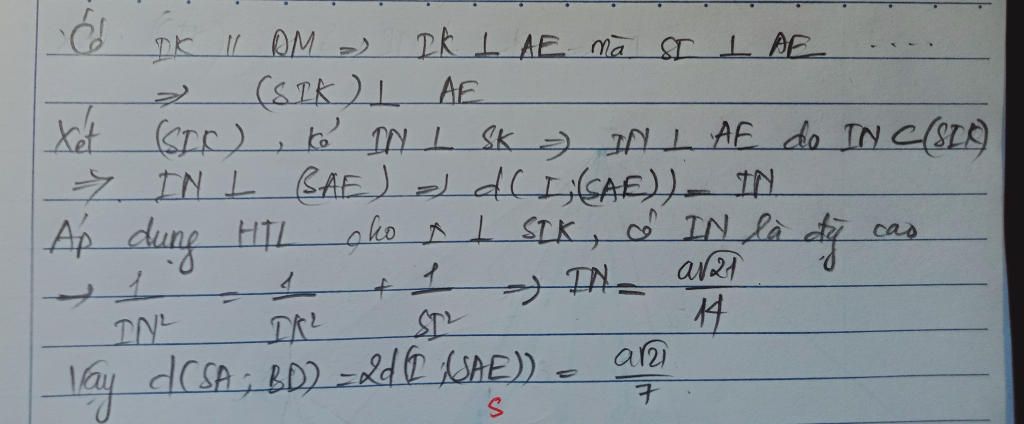 Có IK // DM => IK ⊥ AE mà SI ⊥ AE ....
=> (SIK) ⊥ AE
Xét (SIK), kẻ IN ⊥ SK => IN ⊥ AE do IN ⊂ (SIK)
=> IN ⊥ (SAE) => d(I;(SAE)) = IN
Áp dụng HTL cho Δ ⊥ SIK, có IN là đg cao
→ 1/IN² = 1/IK² + 1/SI² => IN = a√21/14
Vậy d(SA; BD) = 2d(I;(SAE)) = a√21/7
S